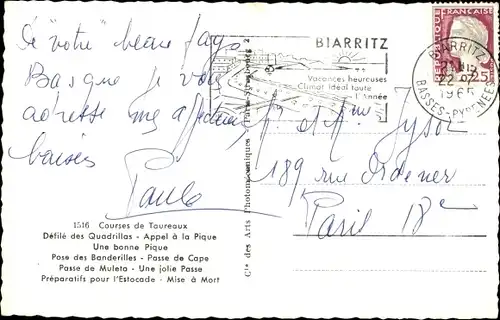 De "votre" beau pays
Basque je vous
adresse mes affectueux
baisers
Paula
1516 Courses de Taureaux
Défilé des Quadrillas - Appel à la Pique
Une bonne Pique
Pose des Banderilles - Passe de Cape
Passe de Muleta - Une jolie Passe
Préparatifs pour l'Estocade - Mise à Mort
Cie des Arts Photomécaniques - Paris
BIARRITZ
Vacances heureuses
Climat Idéal toute
l'Année
RÉPUBLIQUE FRANÇAISE
0,25
BIARRITZ
22
1965
BASSES-PYRÉNÉES
et Mme
189 rue Ordener
Paris 18e